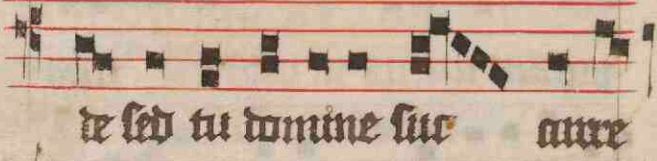 de sed tu domine suc curre